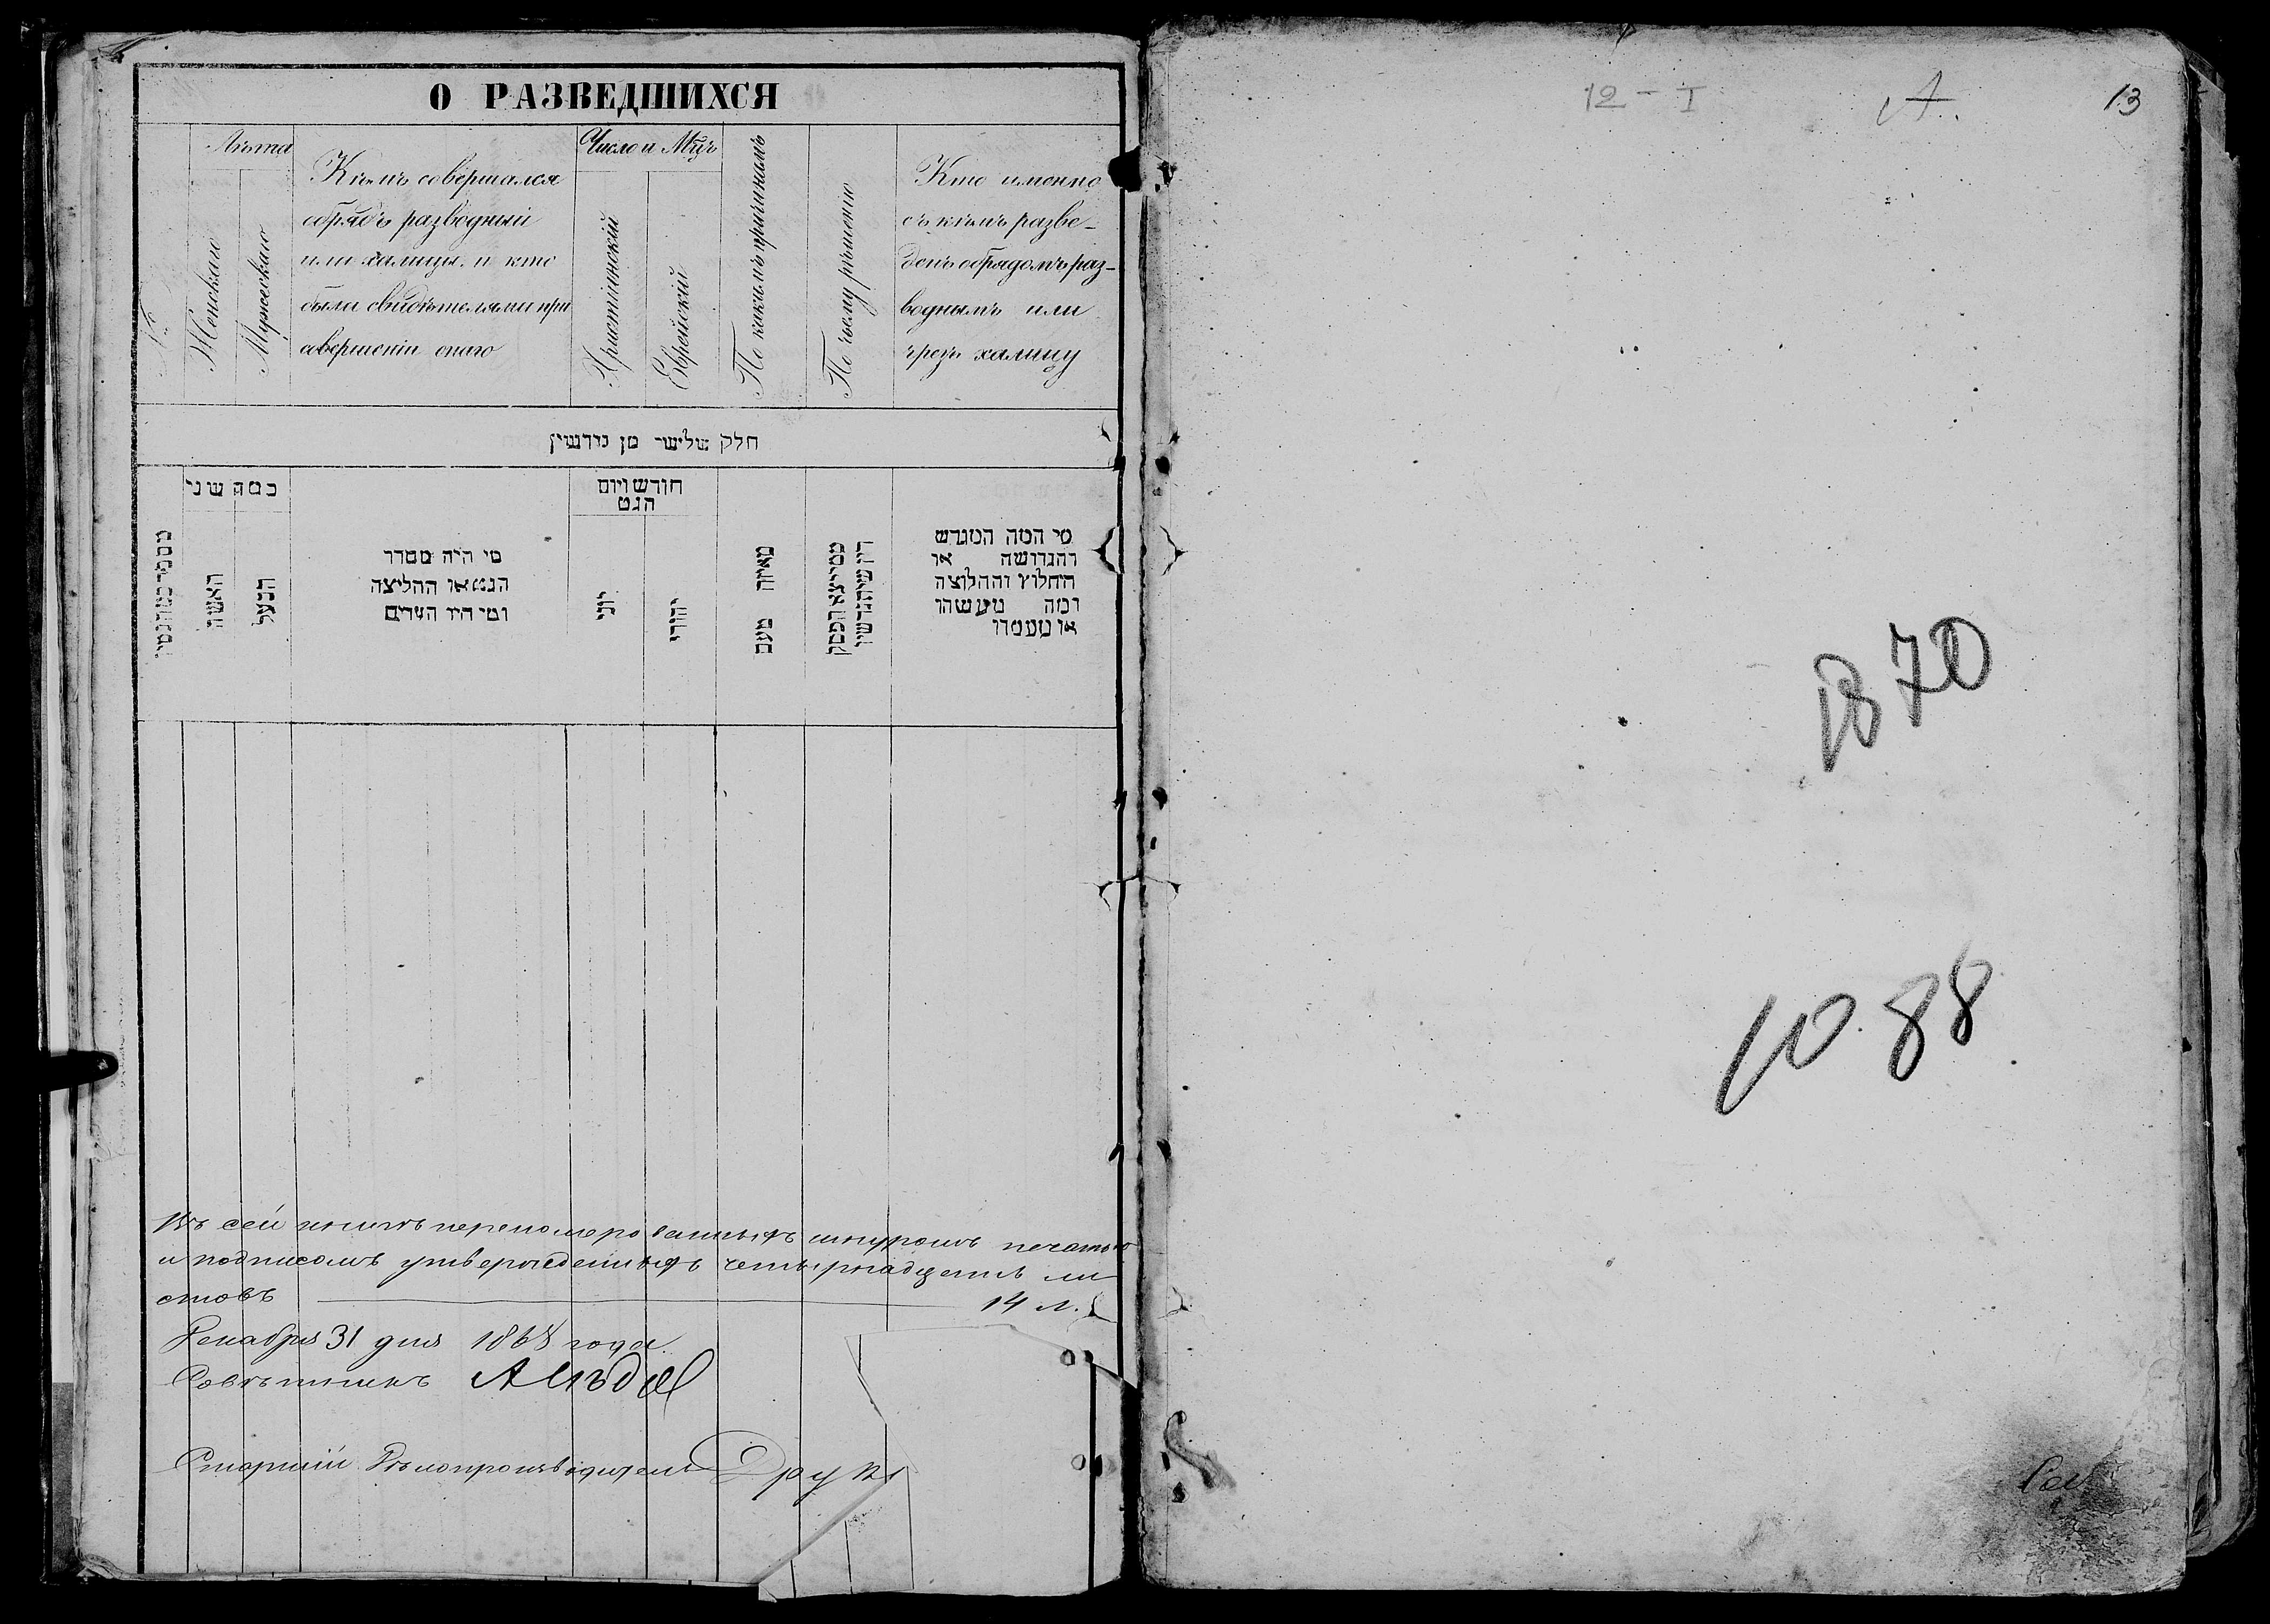 О РАЗВЕДШИХСЯ
№
Лѣта
Женскаго
Мужескаго
Кѣмъ совершался
обрядъ разводный
или халицы, и кто
были свидѣтелями при
совершеніи онаго
Число и Мцъ
Христіянскій
Еврейскій
По какимъ причинамъ
По чьему рѣшенію
Кто именно
съ кѣмъ разве-
денъ обрядомъ раз-
воднымъ или
чрезъ халицу
חלק שלישי מן גירושין
כמה שני
האשה
הבעל
מי היה מסדר
הגט או החליצה
ומי היו העדים
חודש ויום
הגט
יוני
יהודי
מאיזה טעם
ממי יצא הפסק
דין שיתגרשו
מי המה המגרש
והגרושה או
החלוץ והחלוצה
ומה מעשהו
או מעמדו
Въ сей книгѣ перепомерованныхъ шнуромъ печатью
и подписомъ утвержденныхъ четырнадцать ли
стовъ 14 л.
Декабря 31 дня 1868 года
Совѣтникъ
Старшій Дѣлопроизводитель
12 - I
А.
13
1870
10.88
Сов